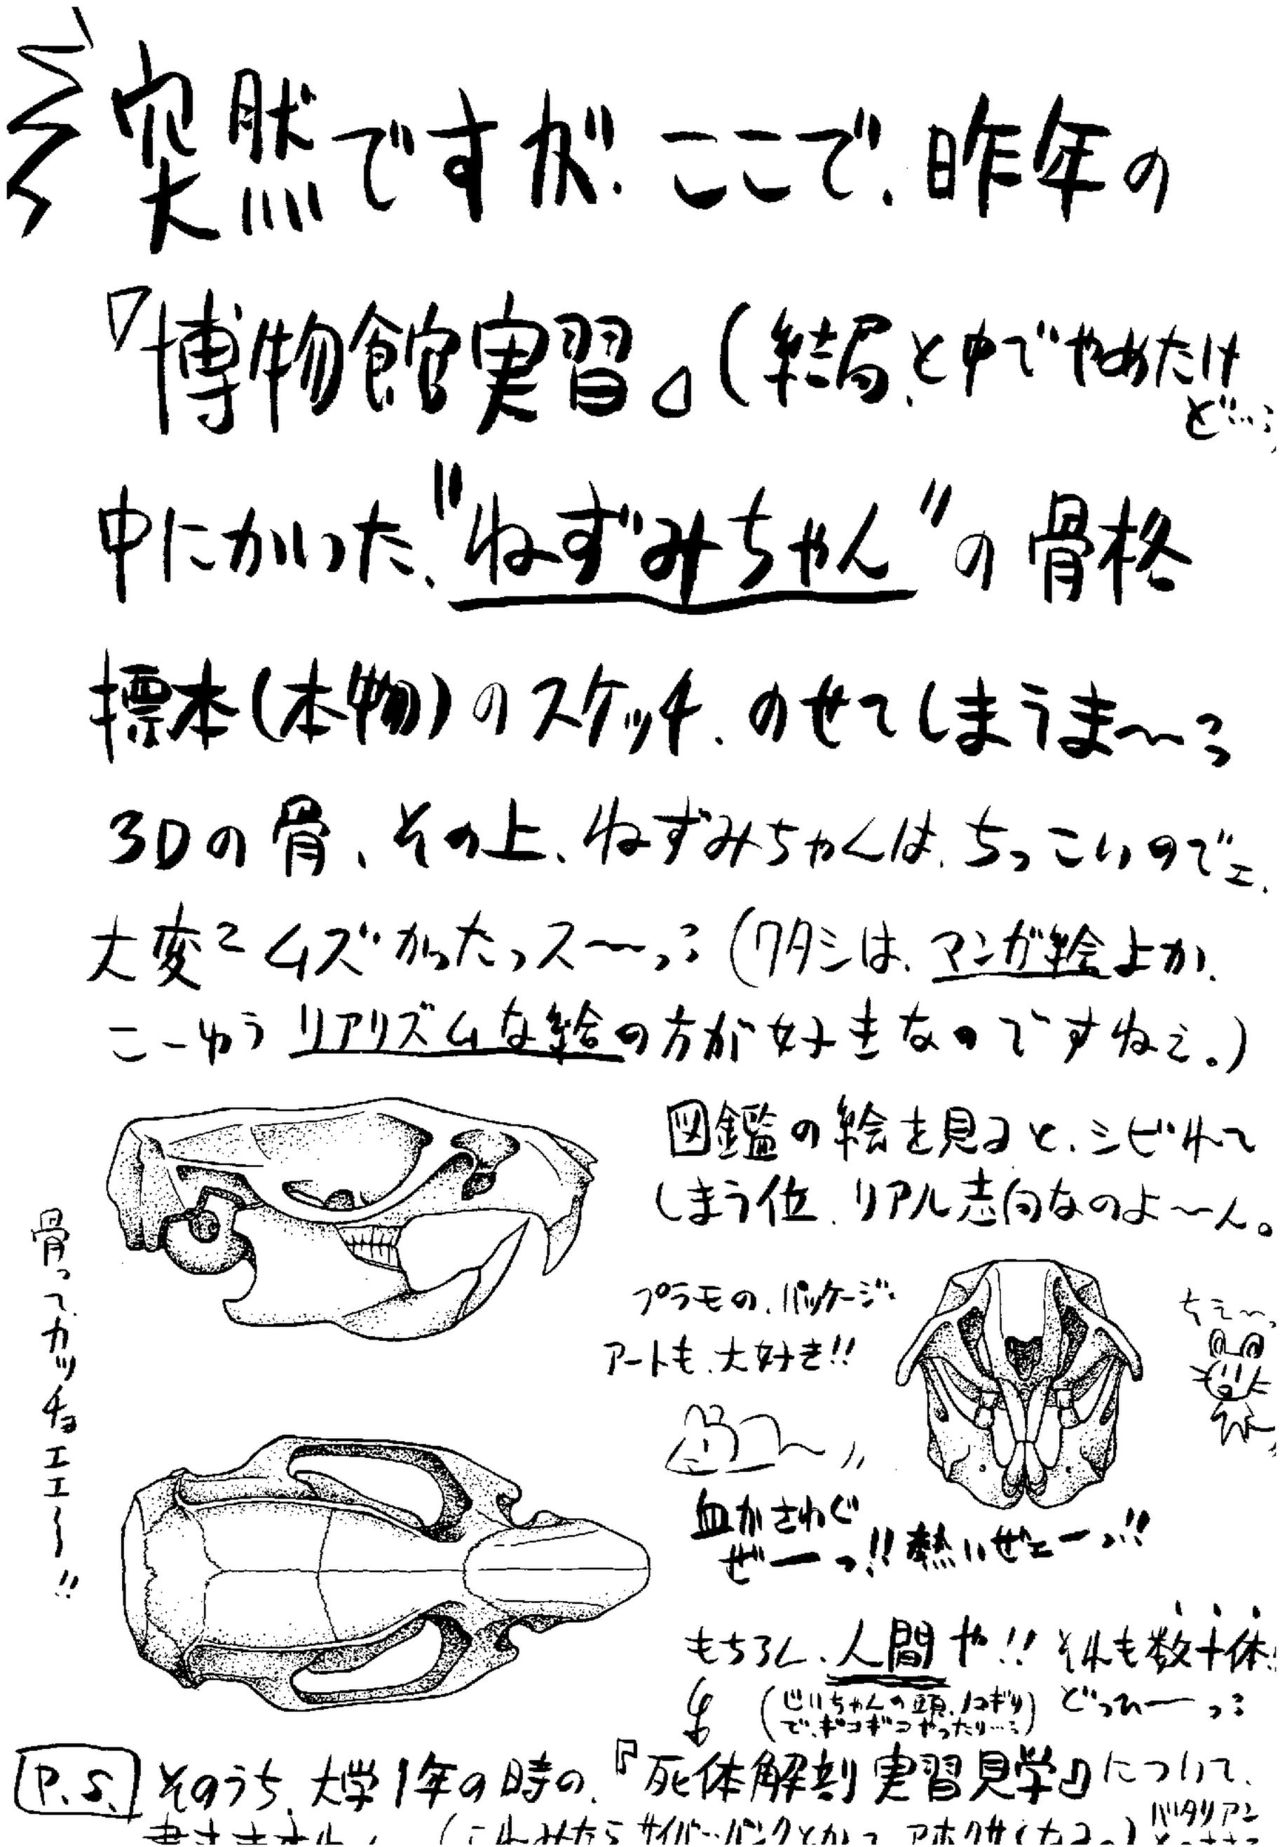 突然ですが、ここで、昨年の
『博物館実習』(結局、と中でやめたけ
ど…;
中にかいった、"ねずみちゃん"の骨格
標本(本物)のスケッチ、のせてしまうま〜っ
3Dの骨、その上、ねずみちゃんは、ちっこいのでェ、
大変ニムズかったっス〜っ;(ワタシは、マンガ絵よか、
こーゆうリアリズムな絵の方が好きなのですねぇ。)
図鑑の絵を見ると、シビれて
しまう位、リアル志向なのよ〜ん。
骨って、カッチョエエ〜!!
プラモの、パッケージ・
アートも、大好き!!
ちえ〜っ
血がさわぐ
ぜーっ!!熱いぜェーっ!!
もちろん、人間や!!それも数十体!!
(じいちゃんの頭、ノコギリ
で、ギコギコやったり…;)
どっひーっ;
P.S. そのうち、大学1年の時の、『死体解剖実習見学』について、
書きますわ。(これみたらサイバーパンクとかって、アホクサくなるっ)
バタリアン